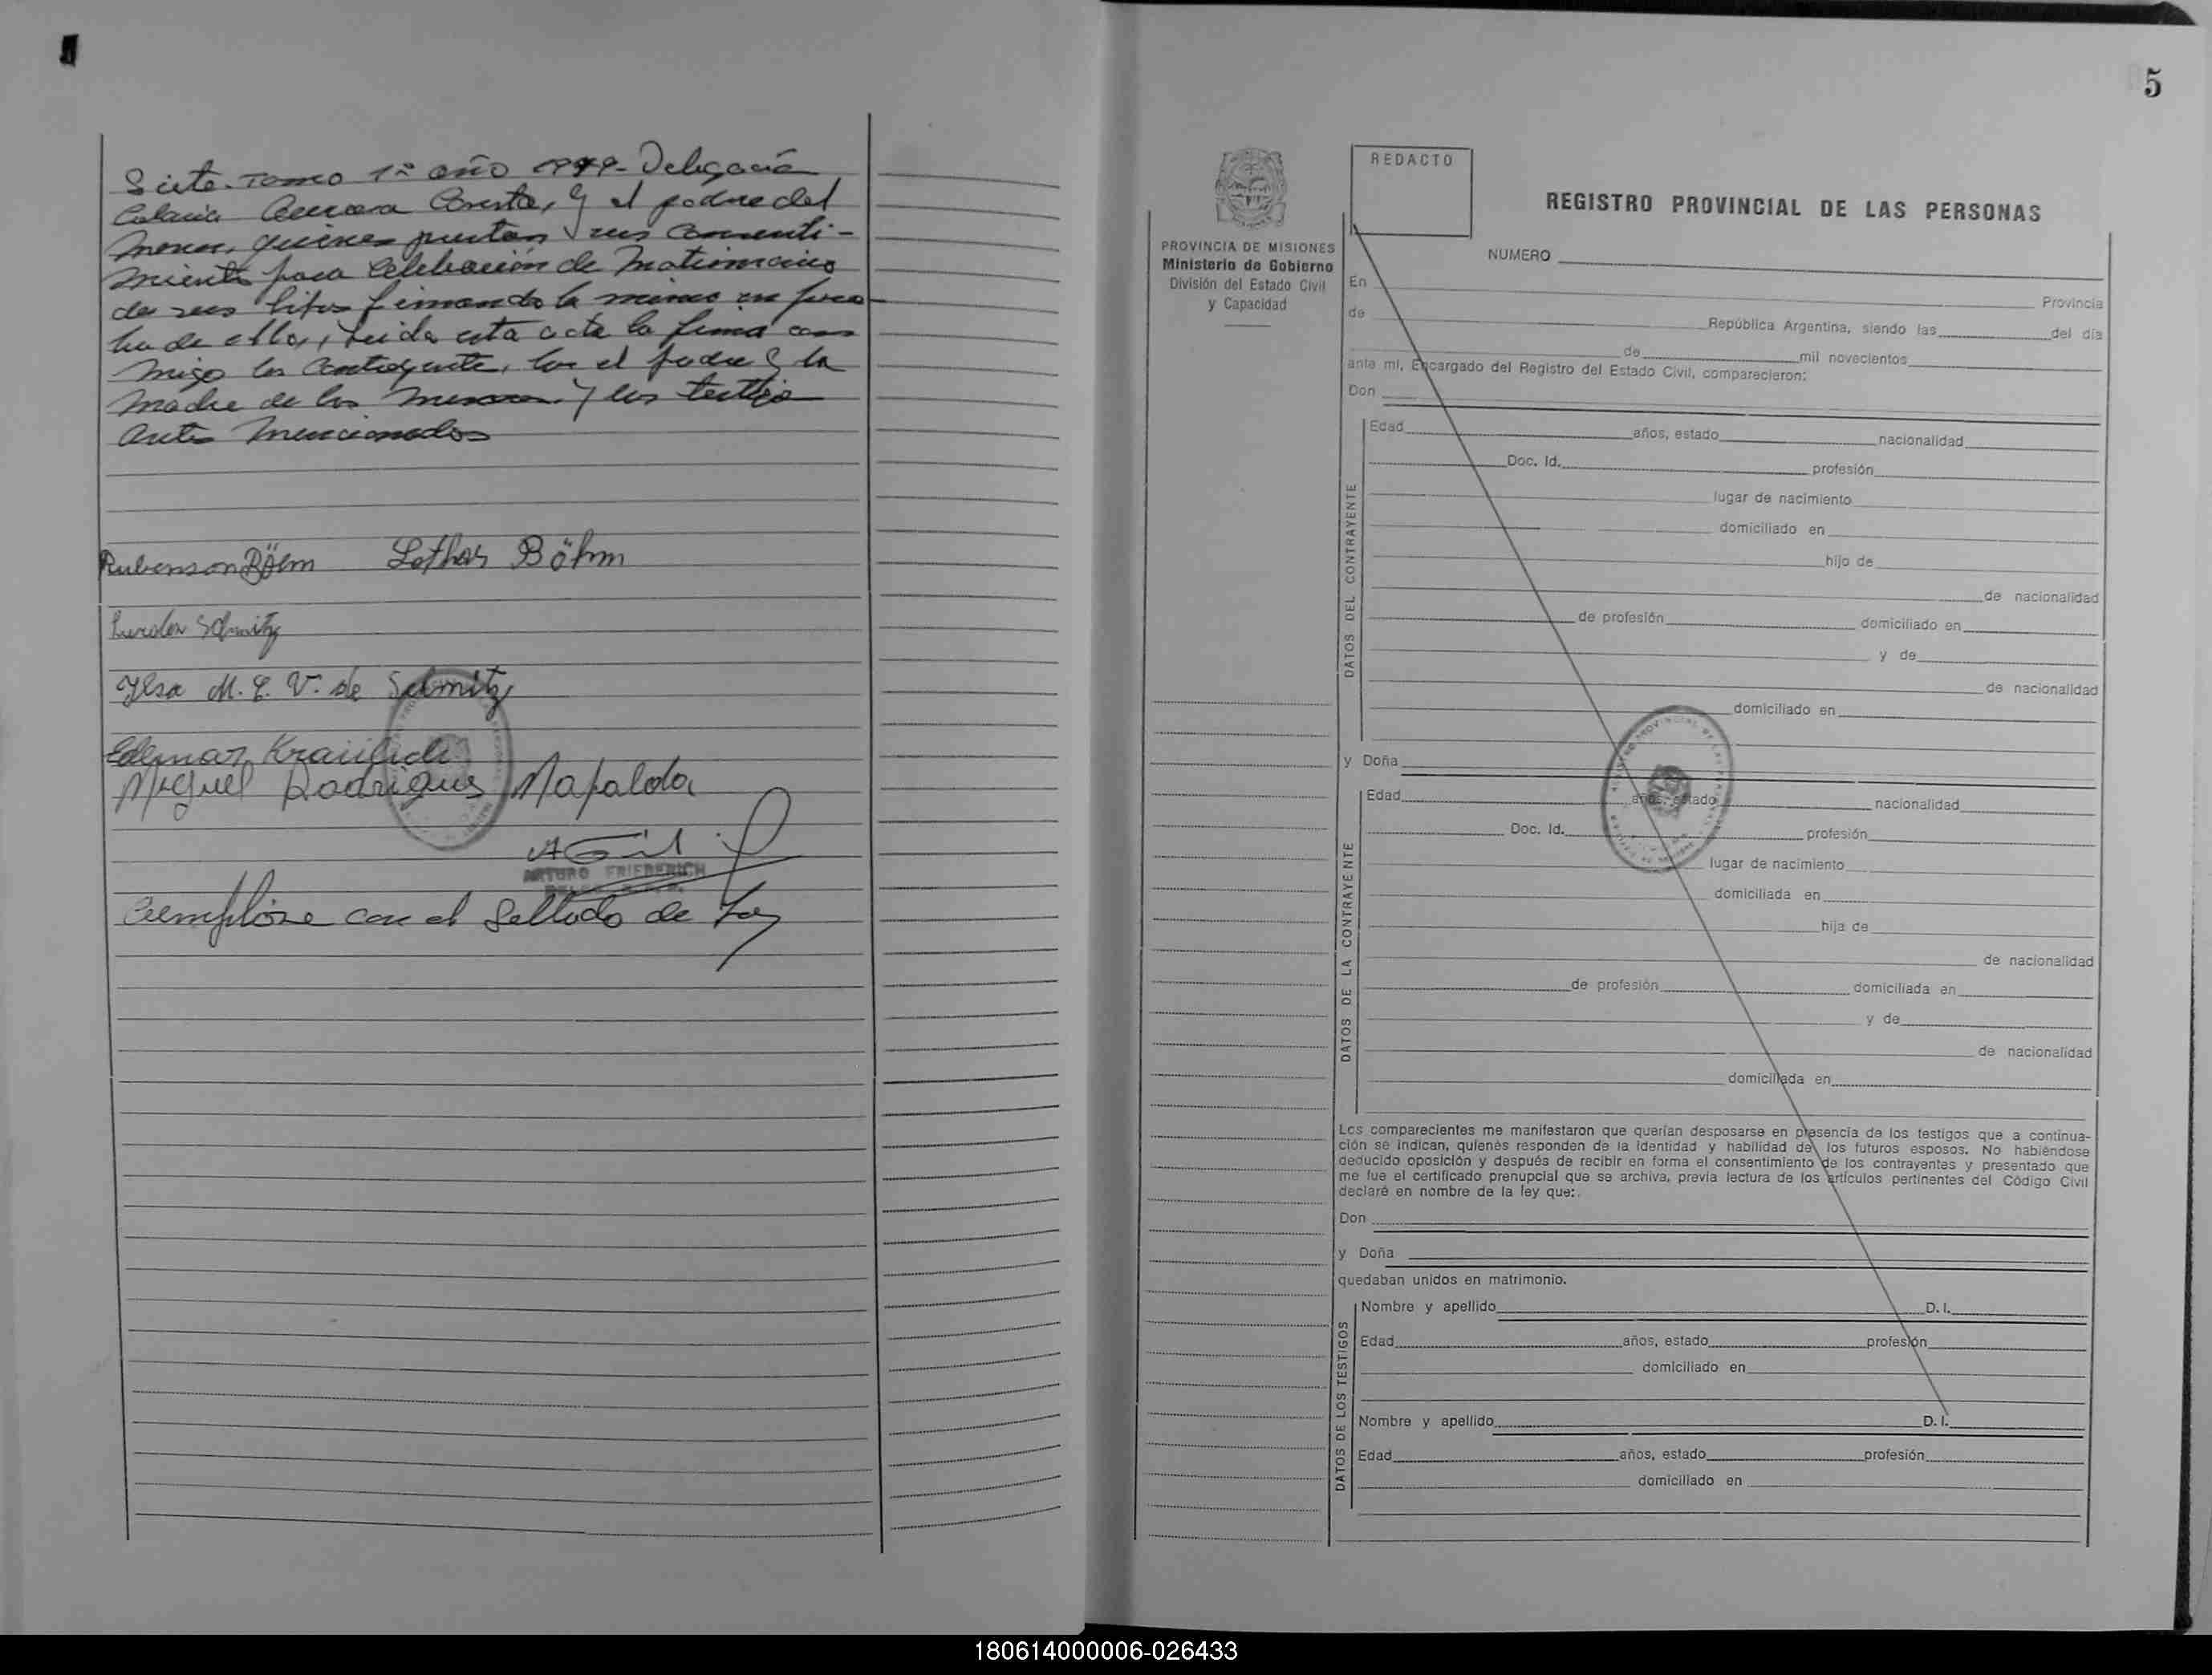 Siete. Tomo 1º año 1979- Delegación
Colonia Aurora Consta, y el padre del
menor, quienes prestan sus consenti-
miento para celebración de matrimonio
de sus hijos firmando la misma en
de ello, Leida esta acta la firma con
migo los contrayente, con el padre y la
madre de los menores y los testigo
antes mencionados
Rubenson Böhm Lothar Böhm
Schmitz
Ylsa M. E. V. de Schmitz
Edemar
Miguel Rodrigues Mafalda
ARTURO FRIEDERICH
con el Sellado de Ley
5
REDACTO
REGISTRO PROVINCIAL DE LAS PERSONAS
PROVINCIA DE MISIONES
Ministerio de Gobierno
División del Estado Civil
y Capacidad
NUMERO
En Provincia
de República Argentina, siendo las del día
de mil novecientos
ante mí, Encargado del Registro del Estado Civil, comparecieron:
Don
DATOS DEL CONTRAYENTE
Edad años, estado nacionalidad
Doc. Id. profesión
lugar de nacimiento
domiciliado en
hijo de
de nacionalidad
de profesión domiciliado en
y de
de nacionalidad
domiciliado en
y Doña
DATOS DE LA CONTRAYENTE
Edad años, estado nacionalidad
Doc. Id. profesión
lugar de nacimiento
domiciliada en
hija de
de nacionalidad
de profesión domiciliada en
y de
de nacionalidad
domiciliada en
Los comparecientes me manifestaron que querían desposarse en presencia de los testigos que a continua-
ción se indican, quienes responden de la identidad y habilidad de los futuros esposos. No habiéndose
deducido oposición y después de recibir en forma el consentimiento de los contrayentes y presentado que
me fue el certificado prenupcial que se archiva, previa lectura de los artículos pertinentes del Código Civil
declaré en nombre de la ley que:
Don
y Doña
quedaban unidos en matrimonio.
DATOS DE LOS TESTIGOS
Nombre y apellido D. I.
Edad años, estado profesión
domiciliado en
Nombre y apellido D. I.
Edad años, estado profesión
domiciliado en
180614000006-026433